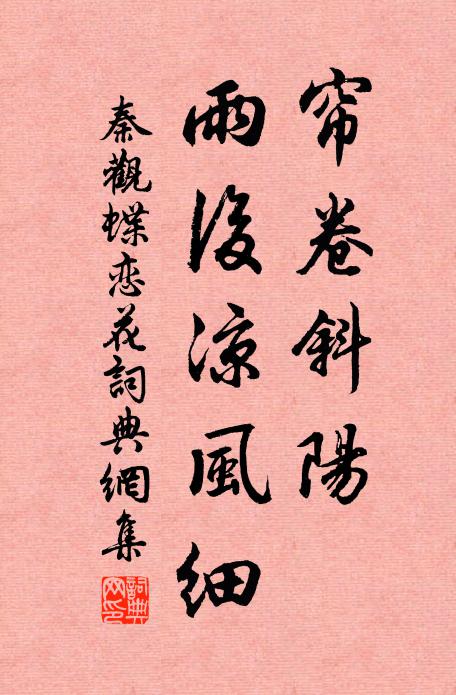 帘卷斜陽
雨後凉風細
秦觀蝶恋花詞典網集
詞典網印